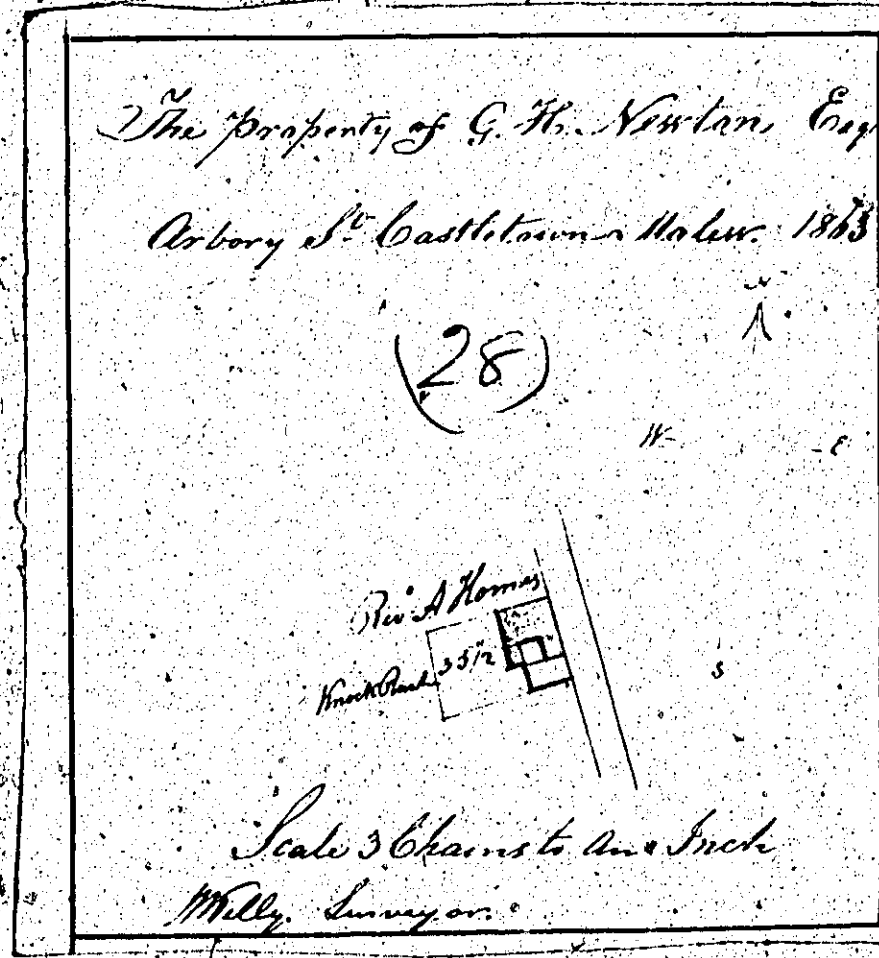 The Property of G. H. Newton, Esqr
Arbory St. Castletown Malew. 1863
N
(28)
W
E
Revd A Homes
35 1/2
Knock Rush
S
Scale 3 Chains to an Inch
Kelly. Surveyor.